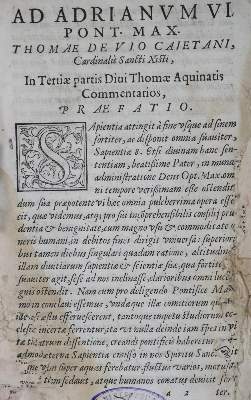 AD ADRIANVM VI.
PONT. MAX.
THOMAE DE VIO CAIETANI,
Cardinalis Sancti Xisti,
In Tertiæ partis Diui Thomæ Aquinatis
Commentarios,
PRAEFATIO.
SApientia attingit à fine vsque ad finem
fortiter, ac disponit omnia suauiter,
Sapientiæ 8. Etsi diuinam hanc sen-
tentiam, beatissime Pater, in mundi
administratione Deus Opt. Max. om
ni tempore verissimam esse ostendit,
dum sua præpotente vi hæc omnia pulcherrima opera effe
cit, quæ videmus, atq; pro sui incomprehensibilis consilij pru
dentia & benignitate, cum magno vsu & commoditate ge
neris humani, in debitos fines dirigit vniuersa: superiori
bus tamen diebus singulari quadam ratione, altitudinem
illam diuitiarum sapientiæ & scientiæ suæ, qua fortiter
suauiter agit, esse ad nos
ostendit. Nam cum pro deligendo Pontifice Ma
in conclaui essemus,
effuerescerent, tantoque impetu studiorum ec
clesiæ incerta ferrentur, vt nulla deinde iam spes in
dissensione, creandi pontificis haberetur
Sapientia
super aquas ferebatur, fluctus
sedauit, atque humanos conatus
a 2